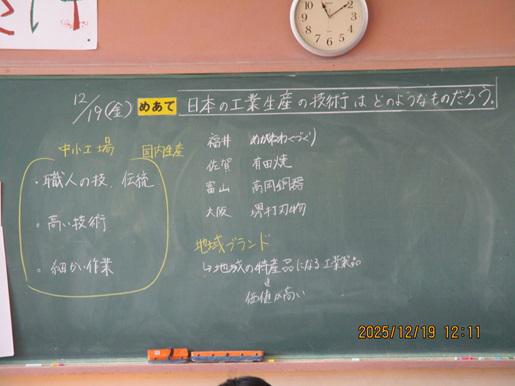 12/19(金) めあて 日本の工業生産の技術はどのようなものだろう。
中小工場 国内生産
・職人の技、伝統
・高い技術
・細かい作業
福井 めがねわく(づくり)
佐賀 有田焼
富山 高岡銅器
大阪 堺打刃物
地域ブランド
↳地域の特産品になる工業製品
↓
価値が高い
2025/12/19 12:11